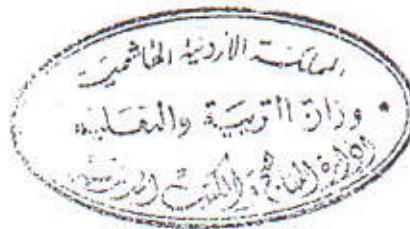 المملكة الأردنية الهاشمية
* وزارة التربية والتعليم
إدارة المناهج والكتب المدرسية